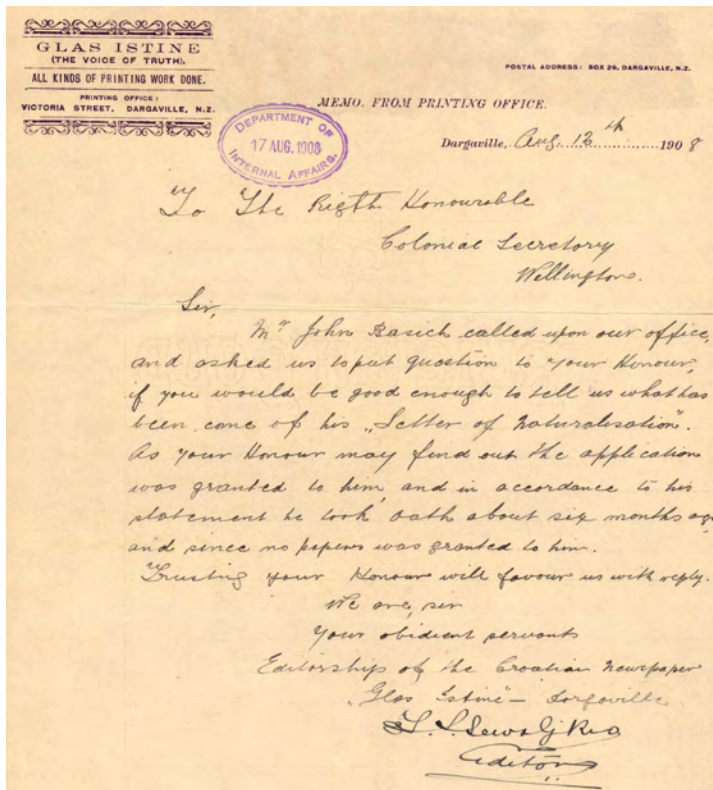 GLAS ISTINE
(THE VOICE OF TRUTH).
ALL KINDS OF PRINTING WORK DONE.
PRINTING OFFICE:
VICTORIA STREET, DARGAVILLE, N.Z.
POSTAL ADDRESS: BOX 29, DARGAVILLE, N.Z.
MEMO. FROM PRINTING OFFICE.
DEPARTMENT OF
17 AUG. 1908
INTERNAL AFFAIRS.
Dargaville, Aug. 12th 1908
To The Rigth Honourable
Colonial Secretory
Wellington.
Sir,
Mr John Basich called upon our office,
and asked us to put question to your Honour,
if you would be good enough to tell us what has
been come of his „Letter of Naturalisation".
As your Honour may find out the application
was granted to him, and in accordance to his
statement he took oath about six months ago
and since no papers was granted to him.
Trusting your Honour will favour us with reply.
We are, sir
your obidient servants
Editorship of the Croatian Newspaper
„Glas Istine" – Dargaville.
Editor